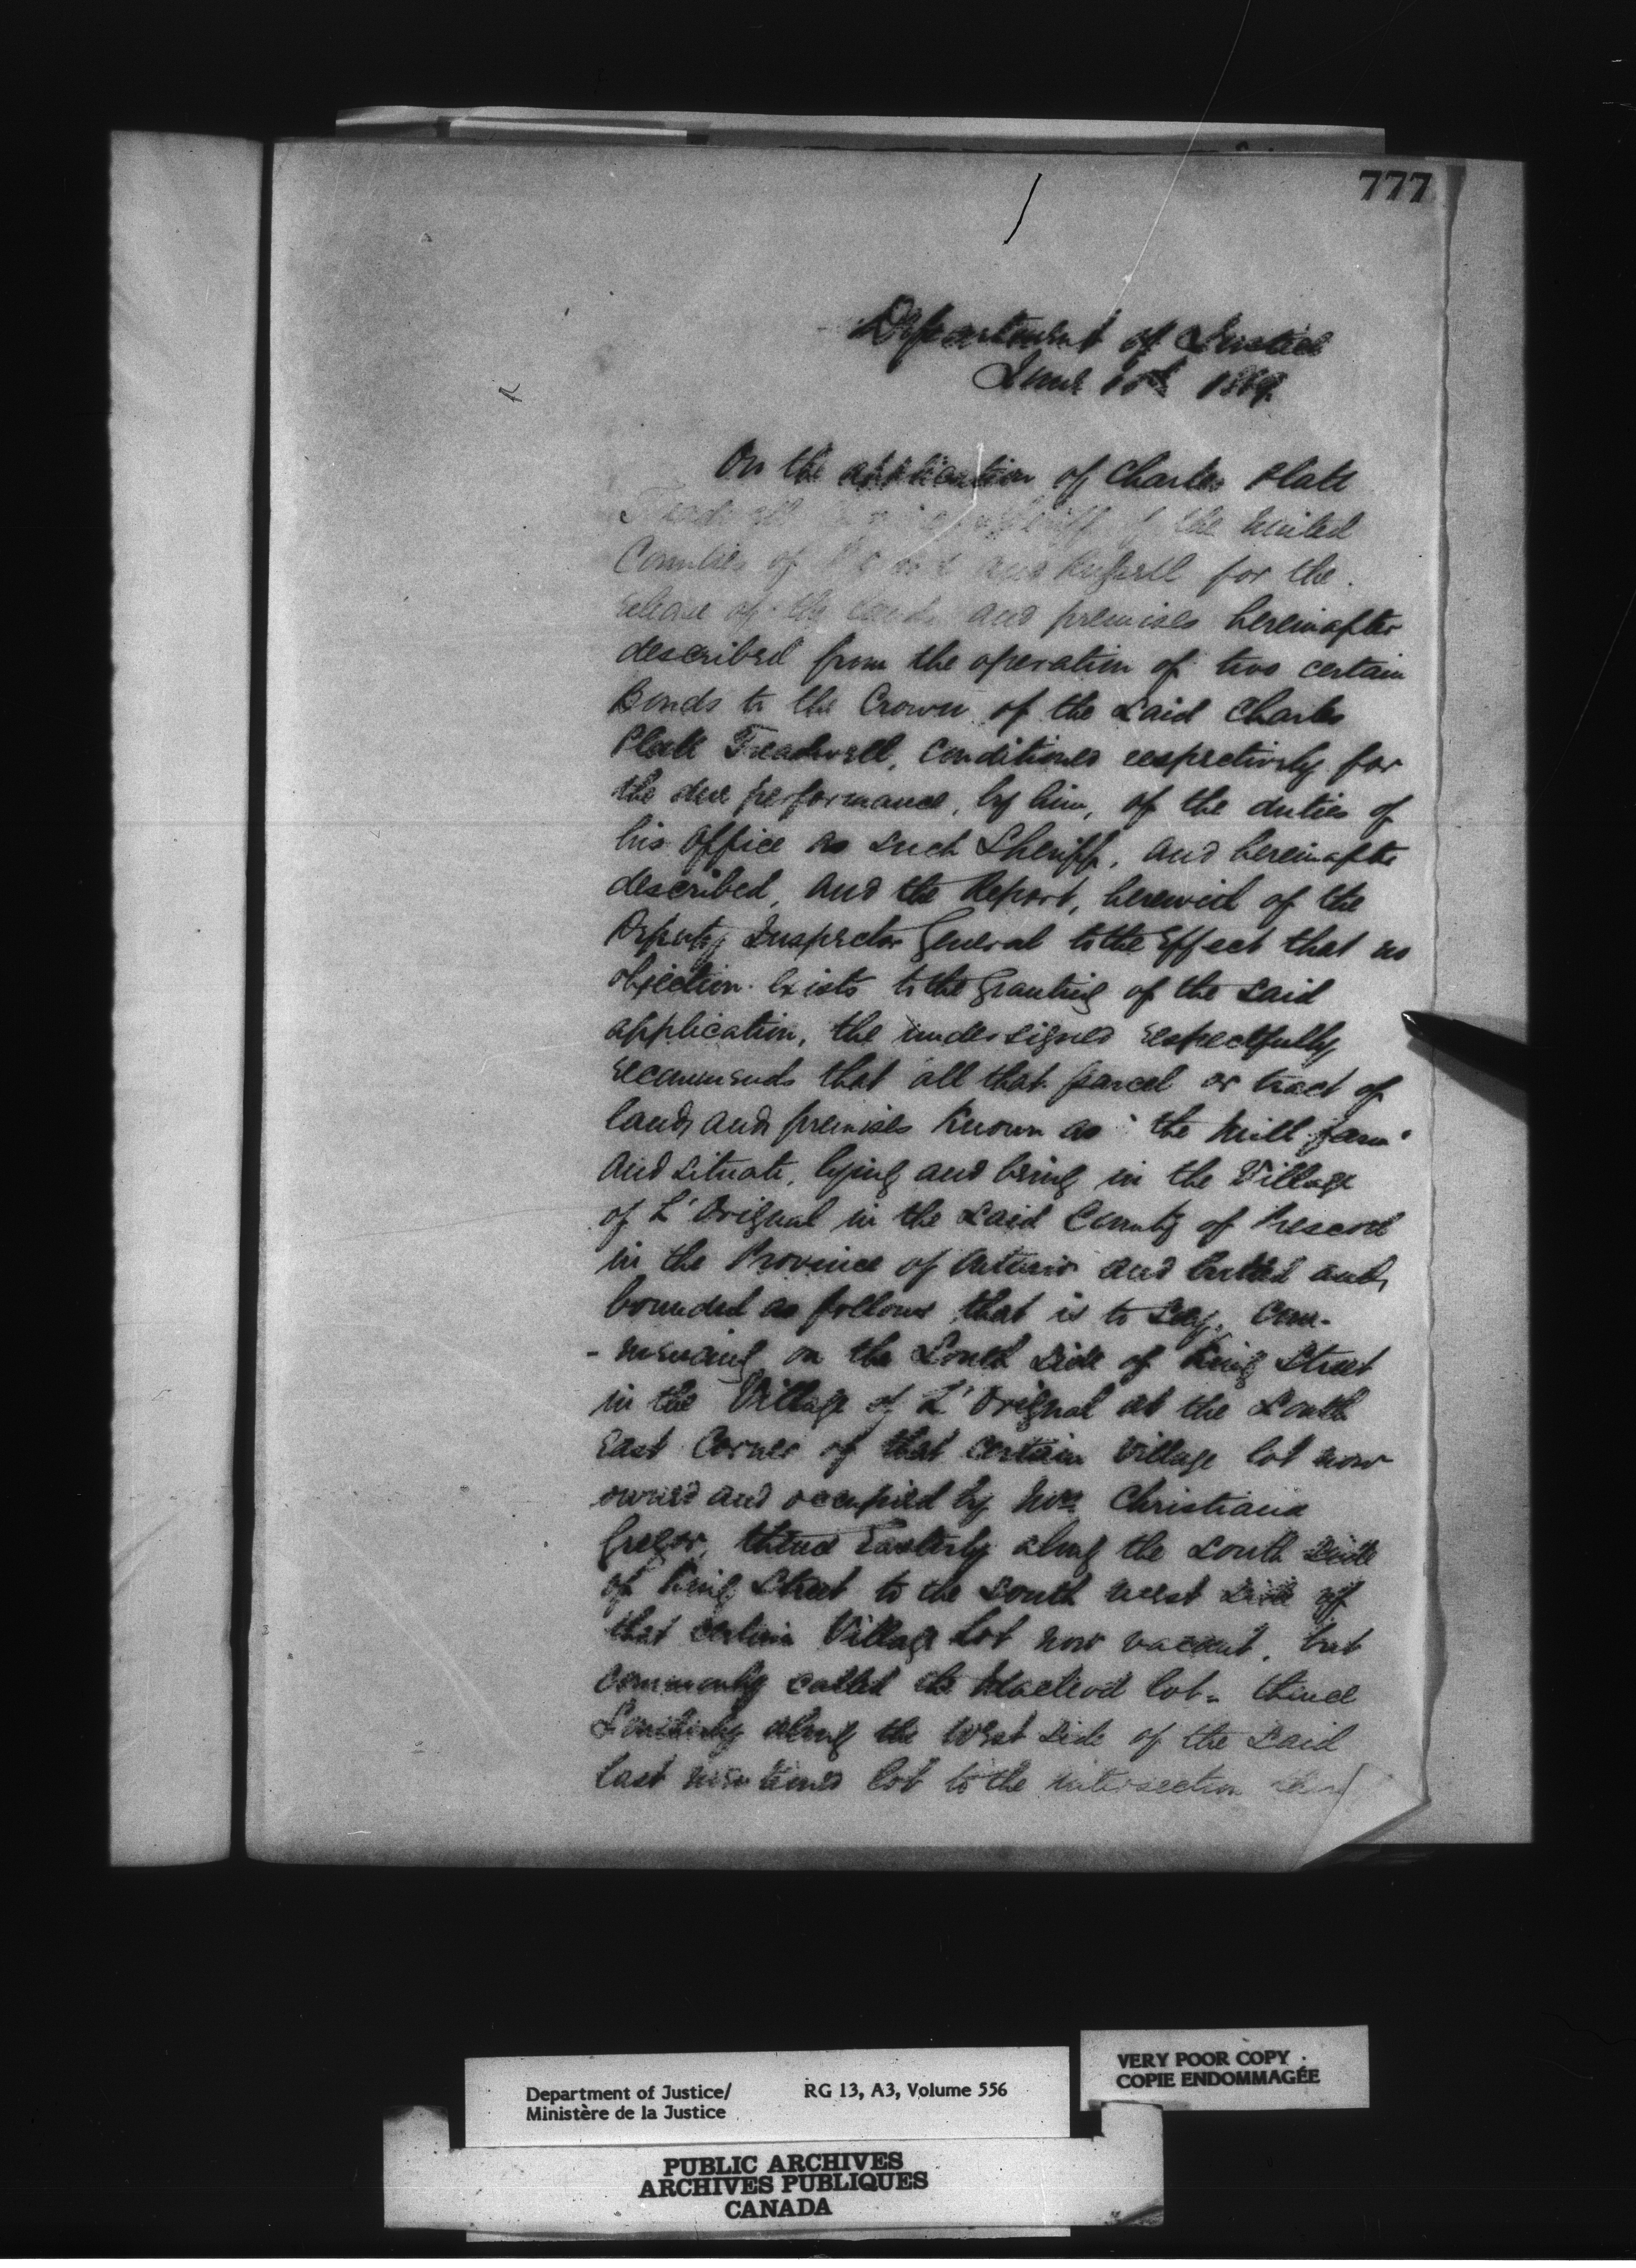 777
Department of Justice
June 1869.
On the application of Charles Platt
Treadwell Sheriff of the United
Counties of Prescott and Russell for the
release of the lands and premises hereinafter
described from the operation of two certain
Bonds to the Crown of the said Charles
Platt Treadwell, conditioned respectively for
the due performance, by him, of the duties of
his office as such Sheriff, and hereinafter
described, and the Report, herewith of the
Deputy Inspector General to the effect that no
objection exists to the granting of the said
application, the undersigned respectfully
recommends that all that parcel or tract of
land and premises known as "the Mill farm"
and situate, lying and being in the Village
of L'Orignal in the said County of Prescott
in the Province of Ontario and butted and
bounded as follows that is to say. Com-
-mencing on the South side of King Street
in the Village of L'Orignal at the South
East Corner of that certain Village lot now
owned and occupied by Mrs. Christiana
Gregor, thence Easterly along the South side
of King Street to the South West side of
that certain Village Lot now vacant, but
commonly called the Macleod lot - thence
Southerly along the West side of the said
last mentioned lot to the intersection
Department of Justice/
Ministère de la Justice
RG 13, A3, Volume 556
VERY POOR COPY
COPIE ENDOMMAGÉE
PUBLIC ARCHIVES
ARCHIVES PUBLIQUES
CANADA